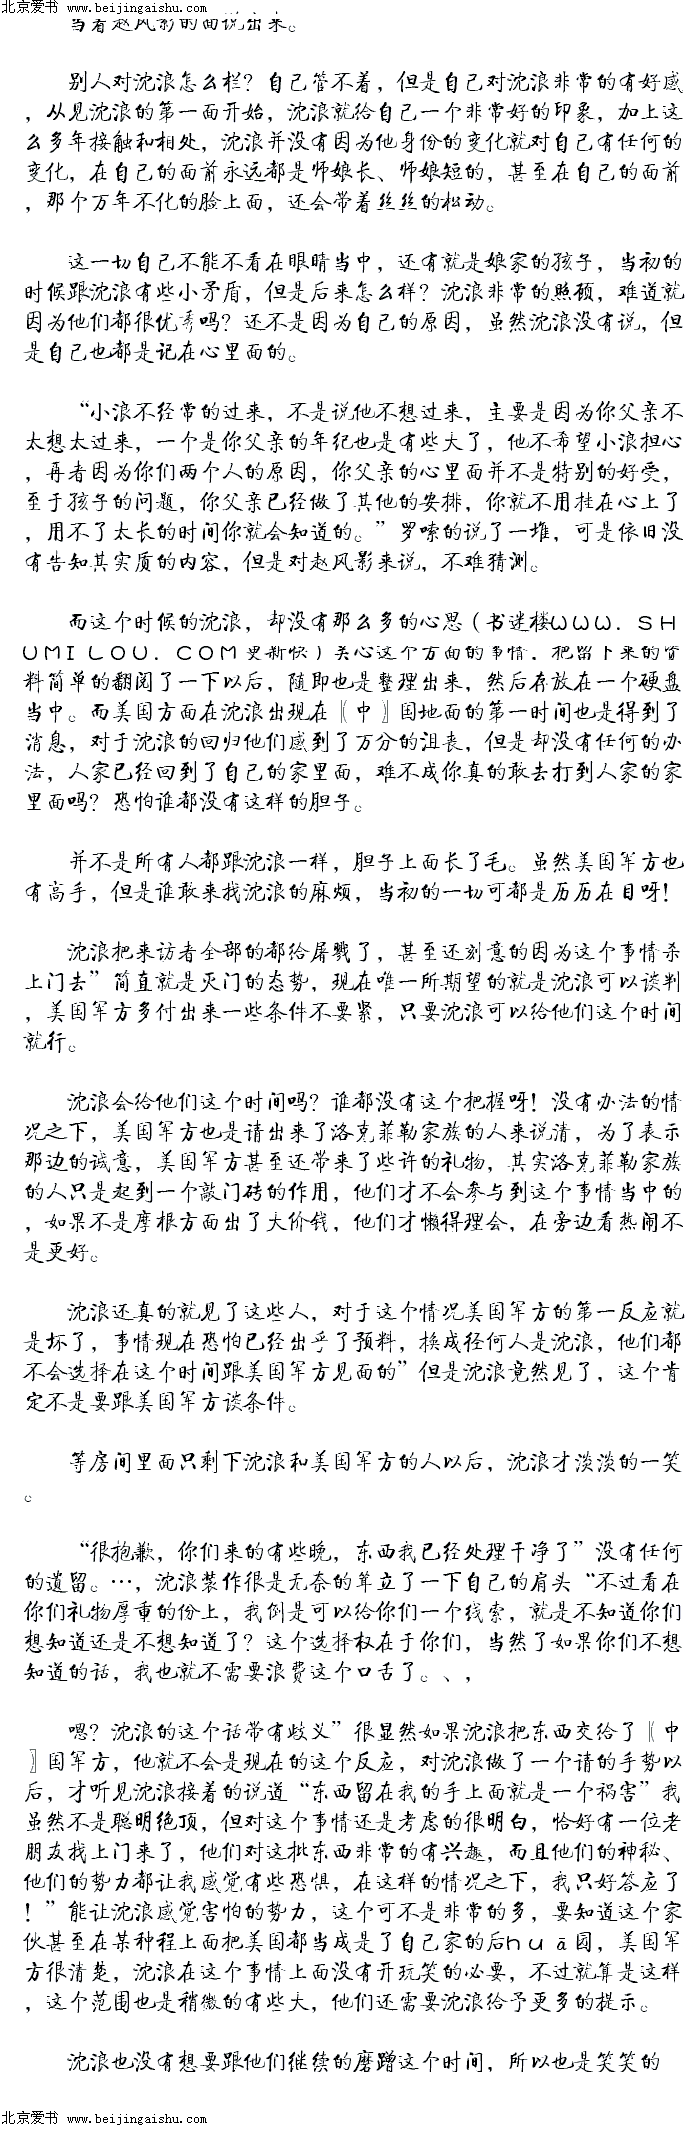 北京爱书 www.beijingaishu.com
当着赵风影的面说出来。
别人对沈浪怎么样？自己管不着，但是自己对沈浪非常的有好感
，从见沈浪的第一面开始，沈浪就给自己一个非常好的印象，加上这
么多年接触和相处，沈浪并没有因为他身份的变化就对自己有任何的
变化，在自己的面前永远都是师娘长、师娘短的，甚至在自己的面前
，那个万年不化的脸上面，还会带着丝丝的松动。
这一切自己不能不看在眼睛当中，还有就是娘家的孩子，当初的
时候跟沈浪有些小矛盾，但是后来怎么样？沈浪非常的照顾，难道就
因为他们都很优秀吗？还不是因为自己的原因，虽然沈浪没有说，但
是自己也都是记在心里面的。
“小浪不经常的过来，不是说他不想过来，主要是因为你父亲不
太想太过来，一个是你父亲的年纪也是有些大了，他不希望小浪担心
，再者因为你们两个人的原因，你父亲的心里面并不是特别的好受，
至于孩子的问题，你父亲已经做了其他的安排，你就不用挂在心上了
，用不了太长的时间你就会知道的。”罗嗦的说了一堆，可是依旧没
有告知其实质的内容，但是对赵风影来说，不难猜测。
而这个时候的沈浪，却没有那么多的心思（书迷楼ＷＷＷ．ＳＨ
ＵＭＩＬＯＵ．ＣＯＭ更新快）关心这个方面的事情，把留下来的资
料简单的翻阅了一下以后，随即也是整理出来，然后存放在一个硬盘
当中。而美国方面在沈浪出现在〖中〗国地面的第一时间也是得到了
消息，对于沈浪的回归他们感到了万分的沮丧，但是却没有任何的办
法，人家已经回到了自己的家里面，难不成你真的敢去打到人家的家
里面吗？恐怕谁都没有这样的胆子。
并不是所有人都跟沈浪一样，胆子上面长了毛。虽然美国军方也
有高手，但是谁敢来找沈浪的麻烦，当初的一切可都是历历在目呀！
沈浪把来访者全部的都给屠戮了，甚至还刻意的因为这个事情杀
上门去”简直就是灭门的态势，现在唯一所期望的就是沈浪可以谈判
，美国军方多付出来一些条件不要紧，只要沈浪可以给他们这个时间
就行。
沈浪会给他们这个时间吗？谁都没有这个把握呀！没有办法的情
况之下，美国军方也是请出来了洛克菲勒家族的人来说清，为了表示
那边的诚意，美国军方甚至还带来了些许的礼物，其实洛克菲勒家族
的人只是起到一个敲门砖的作用，他们才不会参与到这个事情当中的
，如果不是摩根方面出了大价钱，他们才懒得理会，在旁边看热闹不
是更好。
沈浪还真的就见了这些人，对于这个情况美国军方的第一反应就
是坏了，事情现在恐怕已经出乎了预料，换成径何人是沈浪，他们都
不会选择在这个时间跟美国军方见面的”但是沈浪竟然见了，这个肯
定不是要跟美国军方谈条件。
等房间里面只剩下沈浪和美国军方的人以后，沈浪才淡淡的一笑
。
“很抱歉，你们来的有些晚，东西我已经处理干净了”没有任何
的遗留。…，沈浪装作很是无奈的耸立了一下自己的肩头“不过看在
你们礼物厚重的份上，我倒是可以给你们一个线索，就是不知道你们
想知道还是不想知道了？这个选择权在于你们，当然了如果你们不想
知道的话，我也就不需要浪费这个口舌了。、，
嗯？沈浪的这个话带有歧义”很显然如果沈浪把东西交给了〖中
〗国军方，他就不会是现在的这个反应，对沈浪做了一个请的手势以
后，才听见沈浪接着的说道“东西留在我的手上面就是一个祸害”我
虽然不是聪明绝顶，但对这个事情还是考虑的很明白，恰好有一位老
朋友找上门来了，他们对这批东西非常的有兴趣，而且他们的神秘、
他们的势力都让我感觉有些恐惧，在这样的情况之下，我只好答应了
！”能让沈浪感觉害怕的势力，这个可不是非常的多，要知道这个家
伙甚至在某种程上面把美国都当成是了自己家的后ｈｕā园，美国军
方很清楚，沈浪在这个事情上面没有开玩笑的必要，不过就算是这样
，这个范围也是稍微的有些大，他们还需要沈浪给予更多的提示。
沈浪也没有想要跟他们继续的磨蹭这个时间，所以也是笑笑的
北京爱书 www.beijingaishu.com